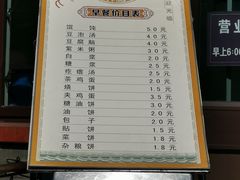 早餐价目表
馄饨 5.0 元
豆泡汤 4.0 元
豆腐脑 4.0 元
紫米粥 3.0 元
白浆 2.5 元
糖浆 2.5 元
疙瘩汤 2.5 元
茶鸡蛋 2.5 元
烧饼 2.5 元
夹鸡蛋 3.5 元
糖油饼 3.0 元
油饼 2.0 元
包子 2.0 元
贴饼 1.5 元
菜饼 1.8 元
杂粮饼 1.8 元
迎光临
营业
早上6:0